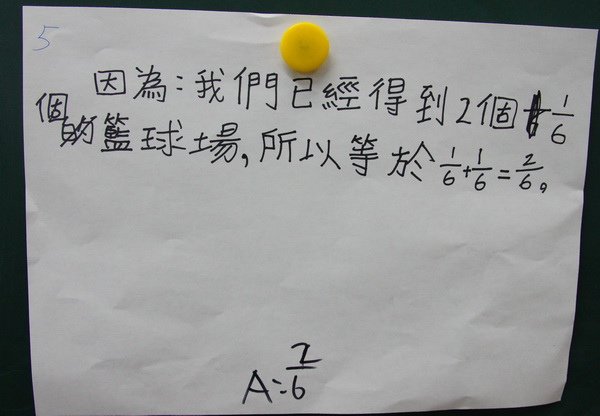 5
因為:我們已經得到2個1/6
個的籃球場,所以等於1/6+1/6=2/6。
A:2/6